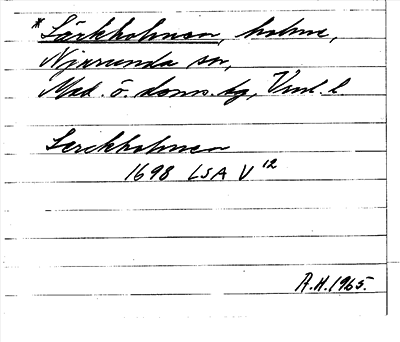 *Lärkholmen, holme,
Njurunda sn,
Med. ö. doms. tg, Vnl. l.
Lerckholmen
1698 LSA V 12
A.H. 1965.